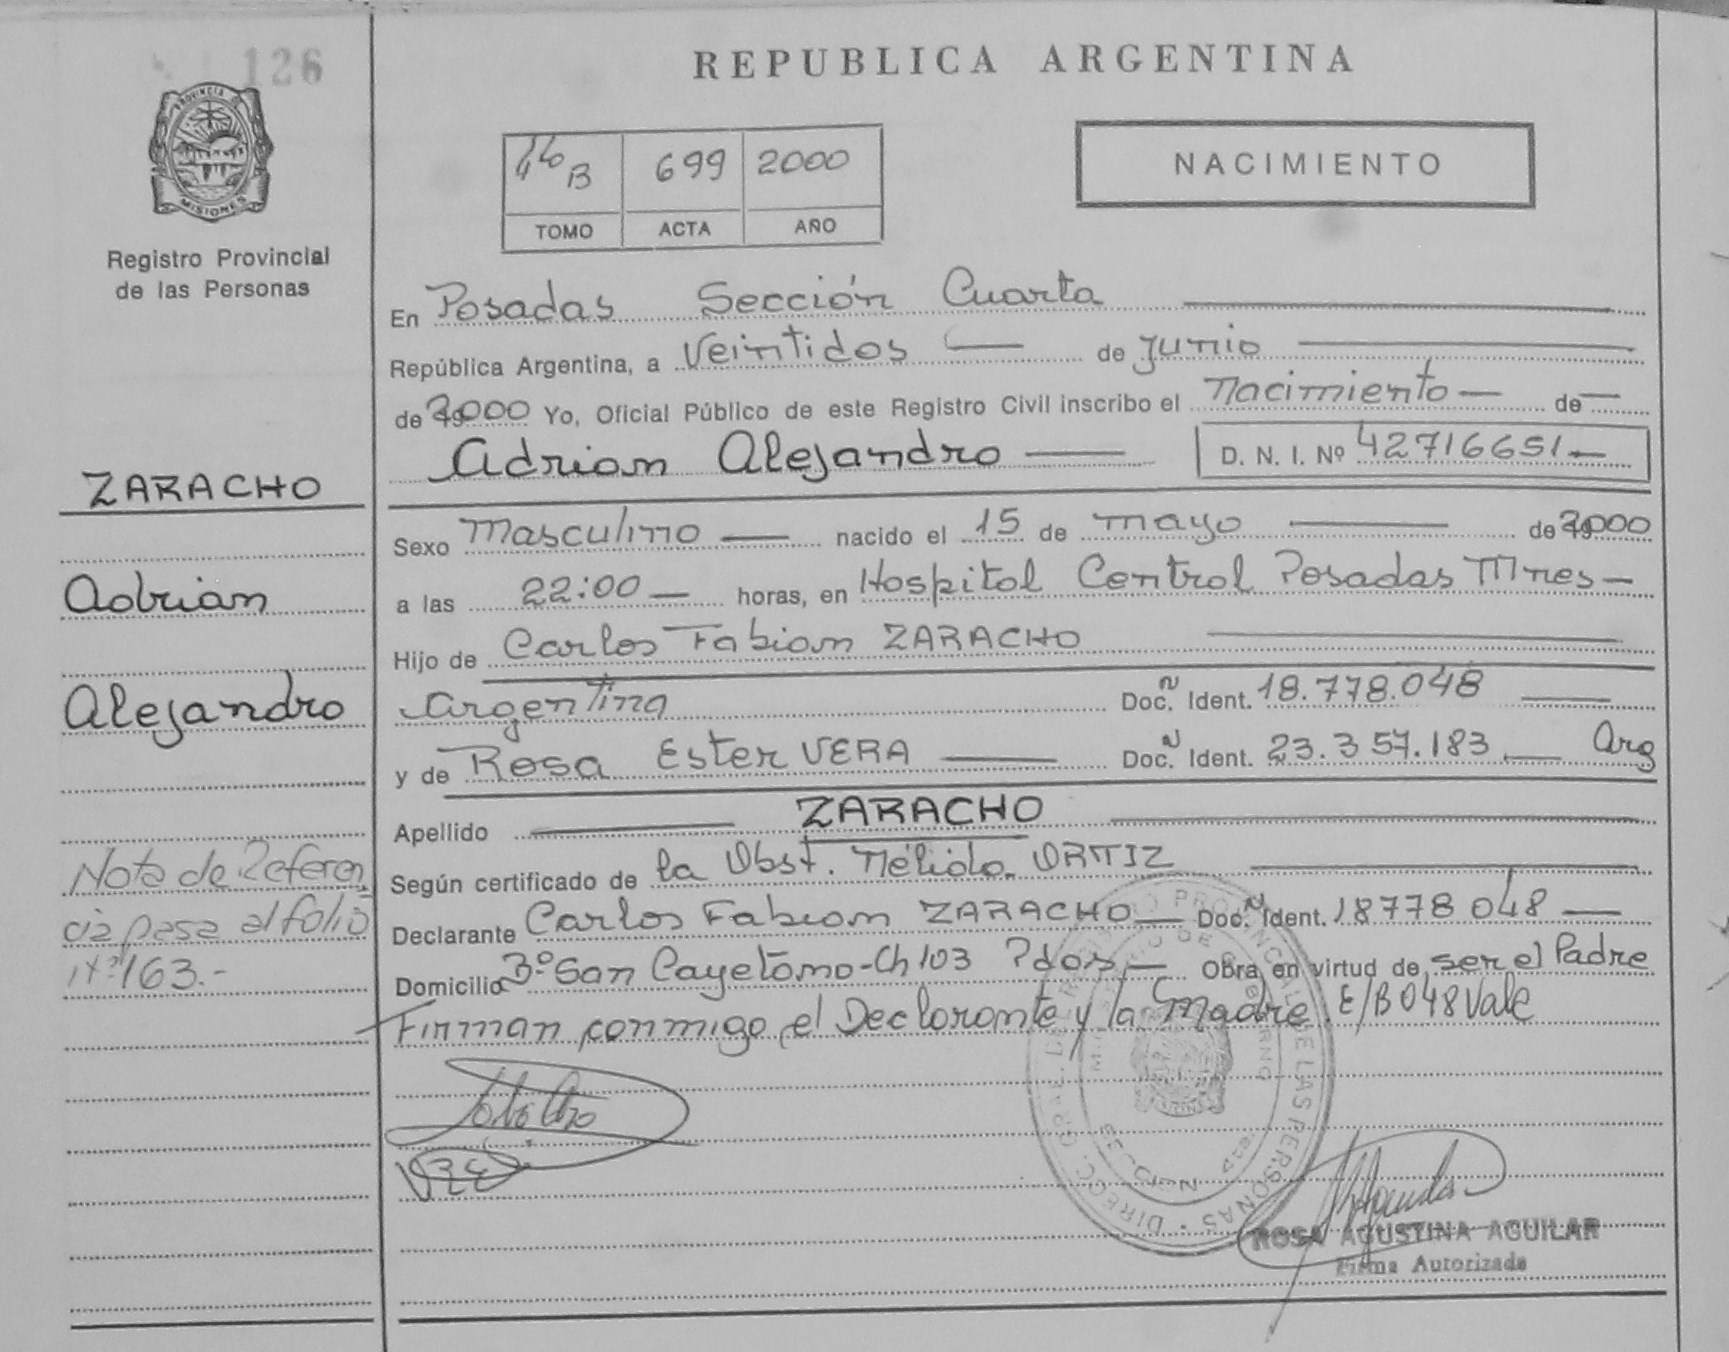 126
PROVINCIA DE
MISIONES
Registro Provincial
de las Personas
ZARACHO
Adrian
Alejandro
Nota de Referen
cia pasa al folio
Nº 163.-
REPUBLICA ARGENTINA
B 699 2000
TOMO ACTA AÑO
NACIMIENTO
En Posadas Sección Cuarta
República Argentina, a Veintidos de Junio
de 2000 Yo, Oficial Público de este Registro Civil inscribo el Nacimiento de
Adrian Alejandro D. N. I. Nº 42716651
Sexo Masculino nacido el 15 de mayo de 2000
a las 22:00 horas, en Hospital Central Posadas Mnes
Hijo de Carlos Fabian ZARACHO
Argentina Doc. Ident. 18.778.048
y de Rosa Ester VERA Doc. Ident. 23.357.183 Arg
Apellido ZARACHO
Según certificado de la Obst. Nélida ORTIZ
Declarante Carlos Fabian ZARACHO Doc. Ident. 18778048
Domicilio Bº San Cayetano-Ch 103 Pdas Obra en virtud de ser el Padre
Firman conmigo el Declarante y la Madre E/B 048 Vale
DIRECC. GRAL. DEL REGISTRO PROVINCIAL DE LAS PERSONAS
MINISTERIO DE GOBIERNO
SECCION
ROSA AGUSTINA AGUILAR
Firma Autorizada